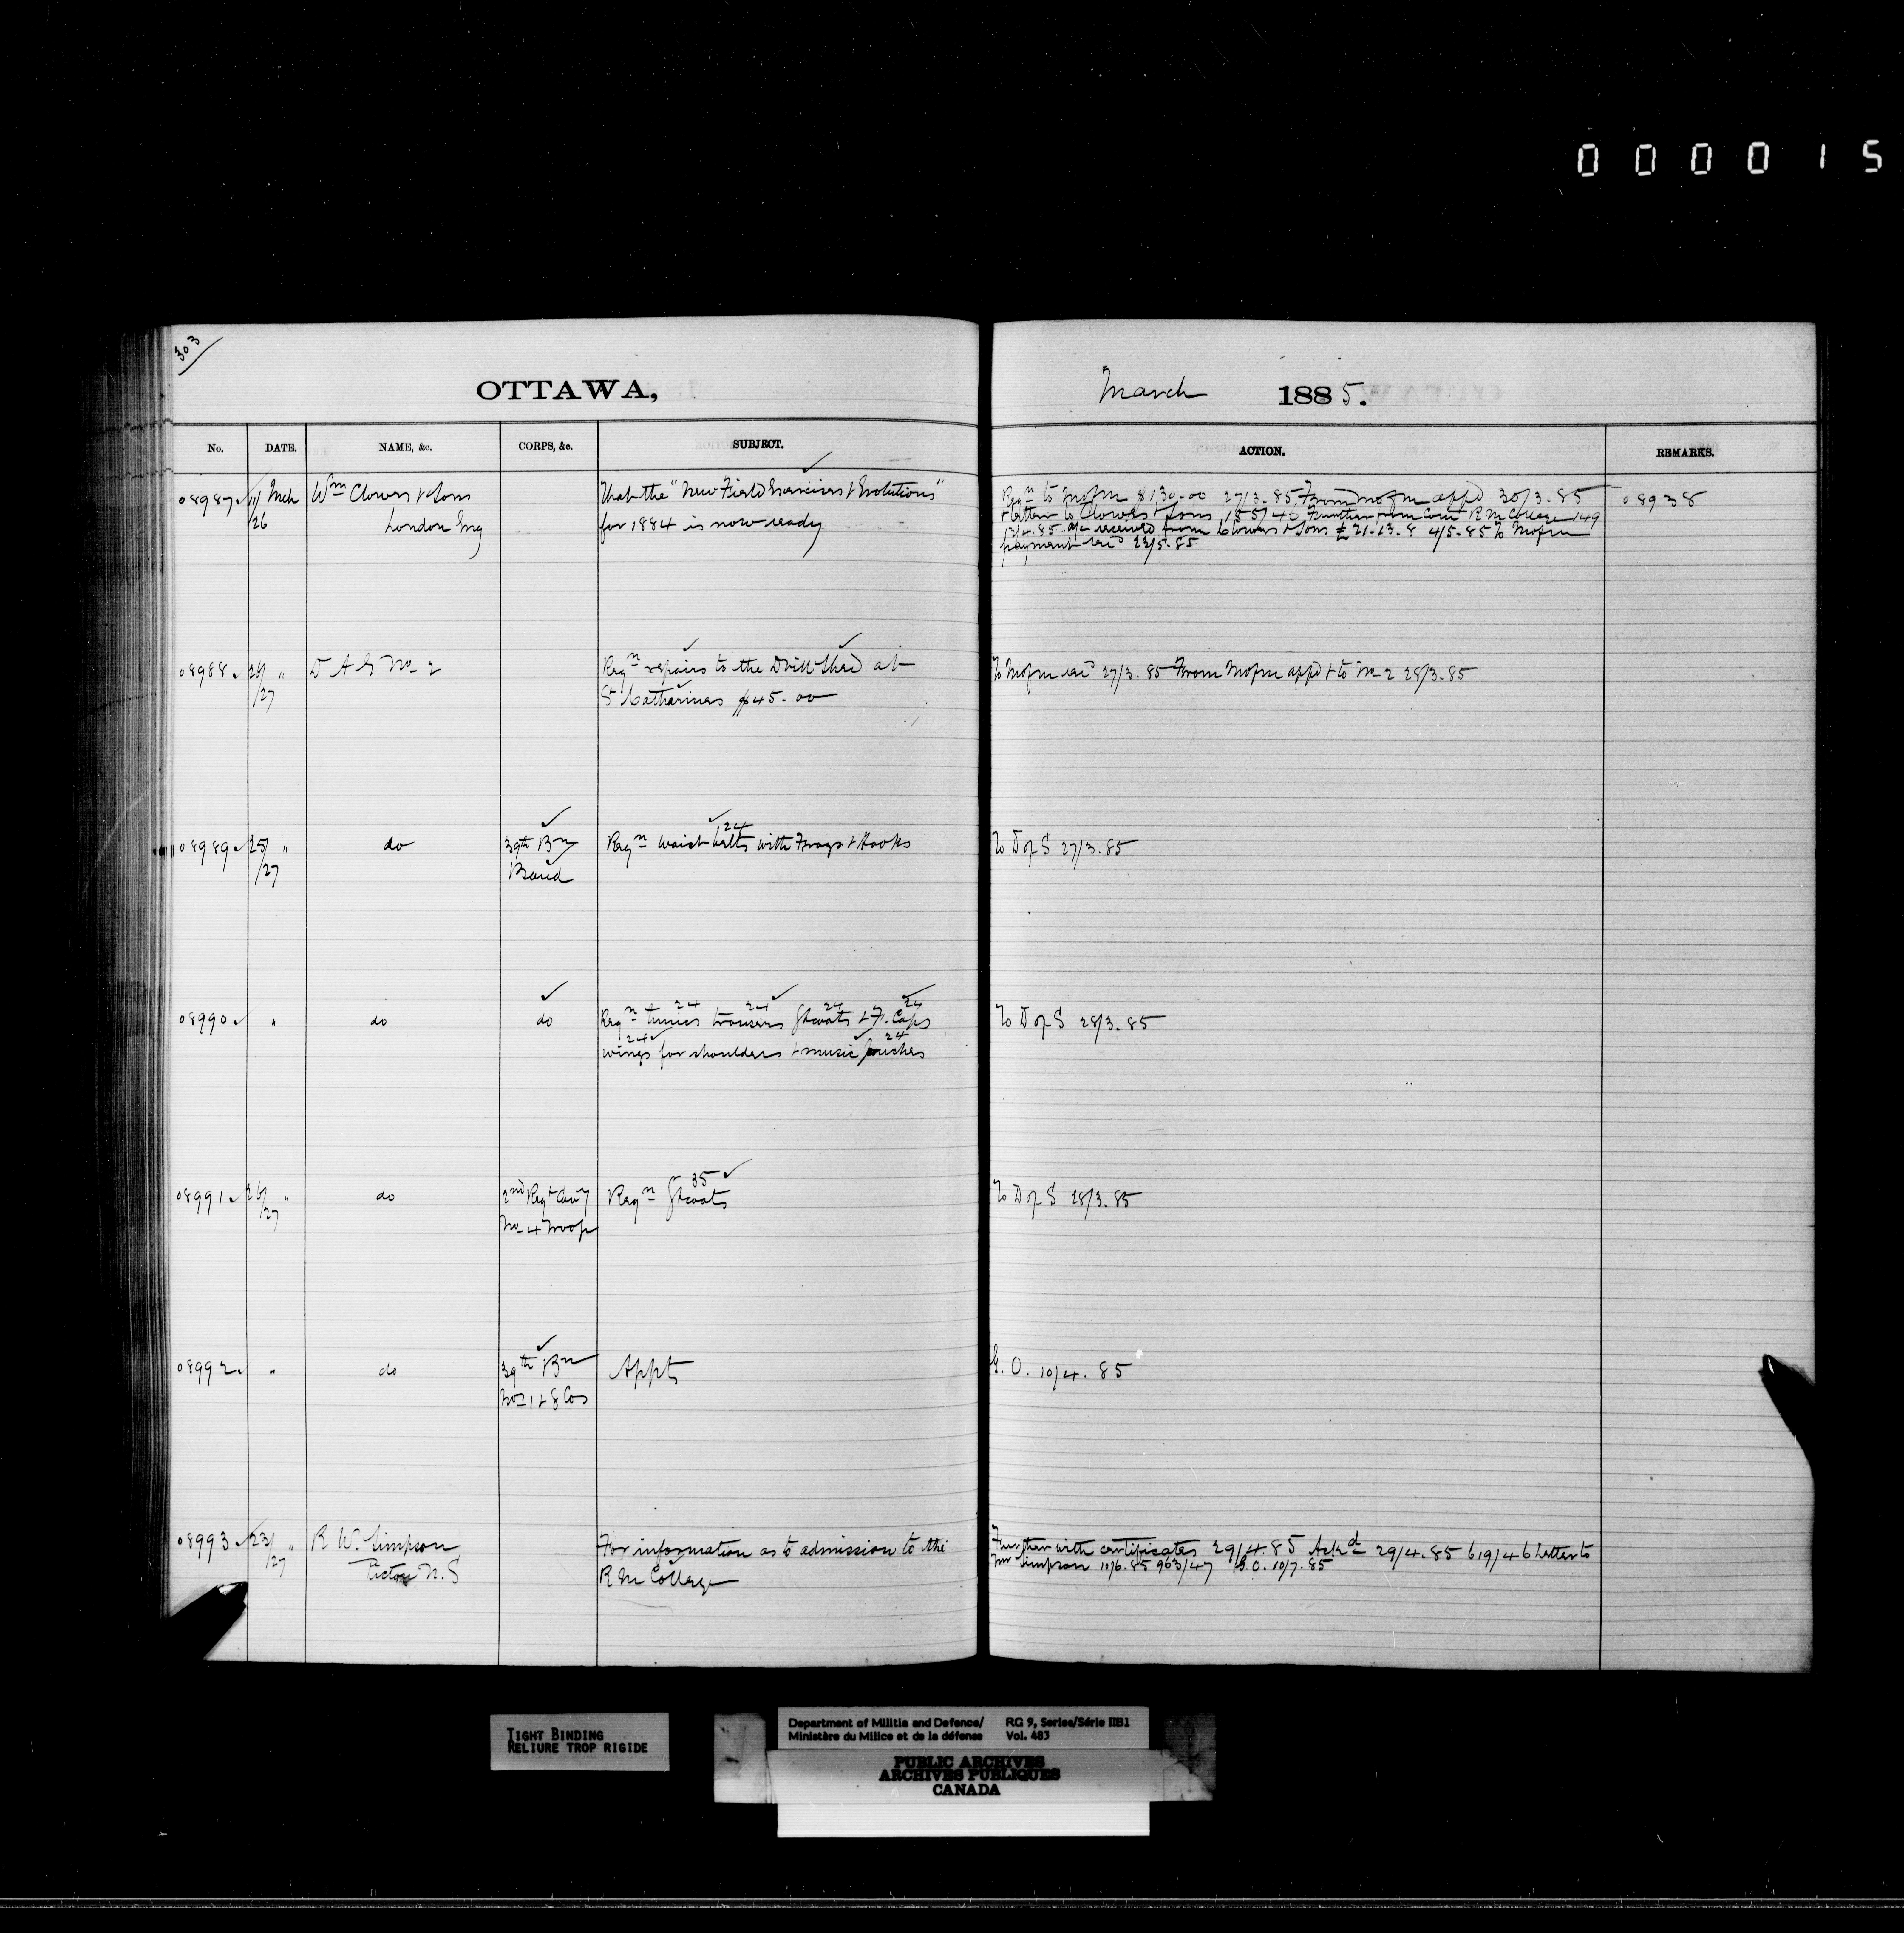 000015
303
OTTAWA,
March 1885.
No. DATE. NAME, &c. CORPS, &c. SUBJECT. ACTION. REMARKS.
08987 11/ Mch Wm Clowes & Sons That the "New Field Exercises & Evolutions" Reqn to Mofm $130.00 27/3.85 From Mofm appd 30/3.85 08938
/26 London Eng for 1884 is now ready & letter to Clowes & Sons 185/45 Further from Com R M College 149
13/4.85 a/c received from Clowes & Sons £21.13.8 4/5.85 To Mofm
payment recd 23/5.85
08988 26/ " D A G No 2 Reqn repairs to the Drill Shed at To Mofm recd 27/3.85 From Mofm appd & to No 2 28/3.85
/27 St Catharines $45.00
08989 25/ " do 39th Bn Reqn waist belts with Frogs & Hooks To D of S 27/3.85
24
/27 Band
08990 " do do Reqn tunics trousers Gtcoats & F. Caps To D of S 28/3.85
24 24 24 24
wings for shoulders & music pouches
24 24
08991 26/ " do 2nd Regt Cavy Reqn Gtcoats To D of S 28/3.85
35
/27 No 4 Troop
08992 " do 39th Bn Appts G.O. 10/4.85
Nos 1 & 8 Cos
08993 23/ " R W. Simpson For information as to admission to the Further with certificates 29/4.85 Ackd 29/4.85 619/46 Letter to
/27 Pictou N.S R M College Mr Simpson 10/6.85 963/47 G.O. 10/7.85
TIGHT BINDING
RELIURE TROP RIGIDE
Department of Militia and Defence/ RG 9, Series/Série IIB1
Ministère du Milice et de la défense Vol. 483
PUBLIC ARCHIVES
ARCHIVES PUBLIQUES
CANADA